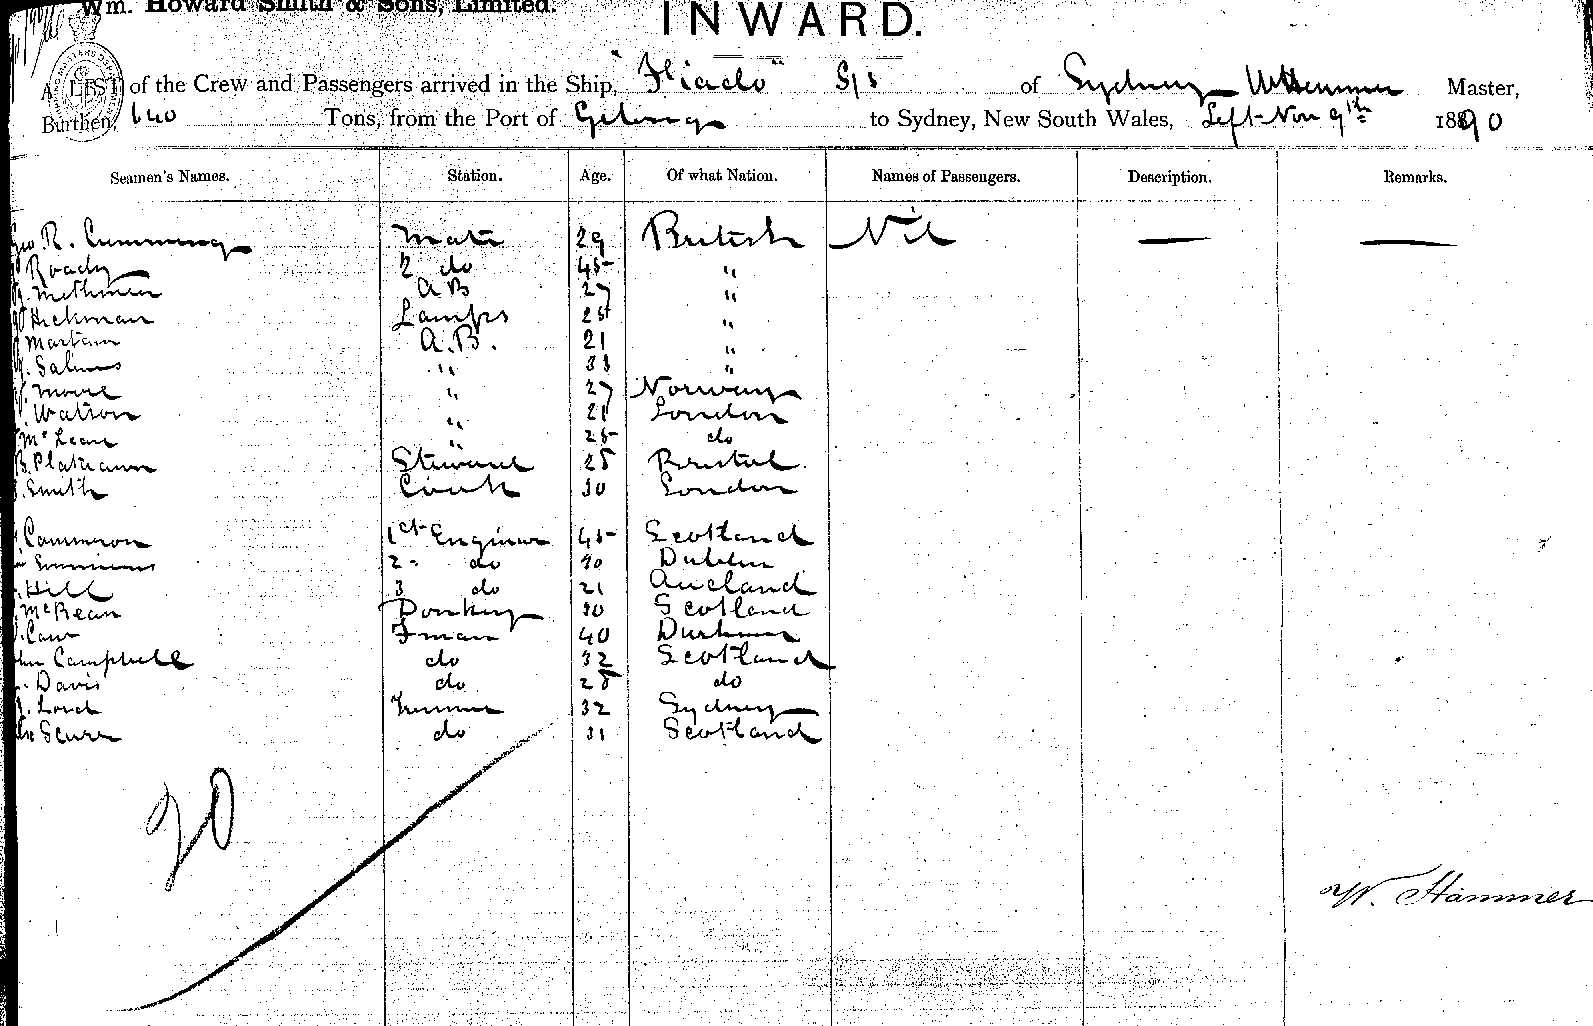 Wm. Howard Smith & Sons, Limited.
INWARD.
A LIST of the Crew and Passengers arrived in the Ship, S/s of Sydney W Hammer Master,
Burthen, 640 Tons, from the Port of Geelong to Sydney, New South Wales, Left Nov 9th 1890
Seamen's Names. Station. Age. Of what Nation. Names of Passengers. Description. Remarks.
Geo R. Cumming Mate 29 British Nil — —
Roady 2 do 45 "
A B 27 "
Hickman Lamps 25 "
Martain A.B. 21 "
" 33 "
Moore " 27 Norway
Watson " 21 London
McLean " 25 do
Steward 25 Bristol
Smith Cook 30 London
Cammeron 1st Engineer 45 Scotland
2 do 30 Dublin
Hill 3 do 21 Aucland
McBean Donkey 30 Scotland
Fman 40 Durham
John Campbell do 32 Scotland
Davis do 25 do
Lord Trimmer 32 Sydney
Scurr do 31 Scotland
20
W. Hammer